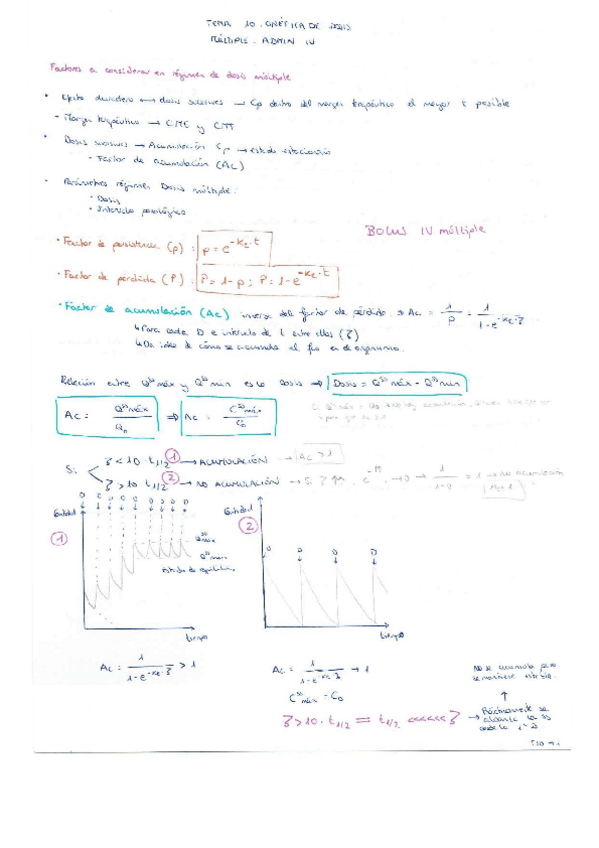 TEMA 10. CINÉTICA DE DOSIS
MÚLTIPLE. ADMIN IV
Factores a considerar en régimen de dosis múltiple
• Efecto duradero → dosis sucesivas → Cp dentro del margen terapéutico el mayor t posible
- Margen terapéutico → CME y CMT
• Dosis sucesivas → Acumulación Cp → estado estacionario
- Factor de acumulación (Ac)
• Parámetros régimen Dosis múltiple:
• Dosis
• Intervalo posológico
BOLUS IV múltiple
• Factor de persistencia (p): p = e^-Ke·t
• Factor de perdida (P): P = 1-p ; P = 1-e^-Ke·t
• Factor de acumulación (Ac) inverso del factor de pérdida → Ac = 1/P = 1/1-e^-Ke·ζ
↳ Para cada D e intervalo de t entre ellas (ζ)
↳ Da idea de cómo se acumula el fco en el organismo.
Relación entre Q^ss máx y Q^ss min es la Dosis ⇒ Dosis = Q^ss máx - Q^ss min
Ac = Q^ss máx / Q0 ⇒ Ac = C^ss máx / C0
Si ζ < 10·t1/2 ① → ACUMULACIÓN → Ac > 1
ζ > 10 t1/2 ② → NO ACUMULACIÓN → Si ζ ↑↑, e^-∞ → 0 → 1/1-0 = 1 → No acumulación
Ac = 1
Cantidad
D D D D D D D D
①
Q^ss máx
Q^ss min
Estado de equilibrio
tiempo
Cantidad
②
D D D D
tiempo
Ac = 1/1-e^-Ke·ζ > 1
Ac = 1/1-e^-Ke·ζ → 1
C^ss máx = C0
No se acumula pero se mantiene estable.
↑
ζ > 10·t1/2 = t1/2 <<<<< ζ → Prácticamente se alcanza la ss desde la 1ª D